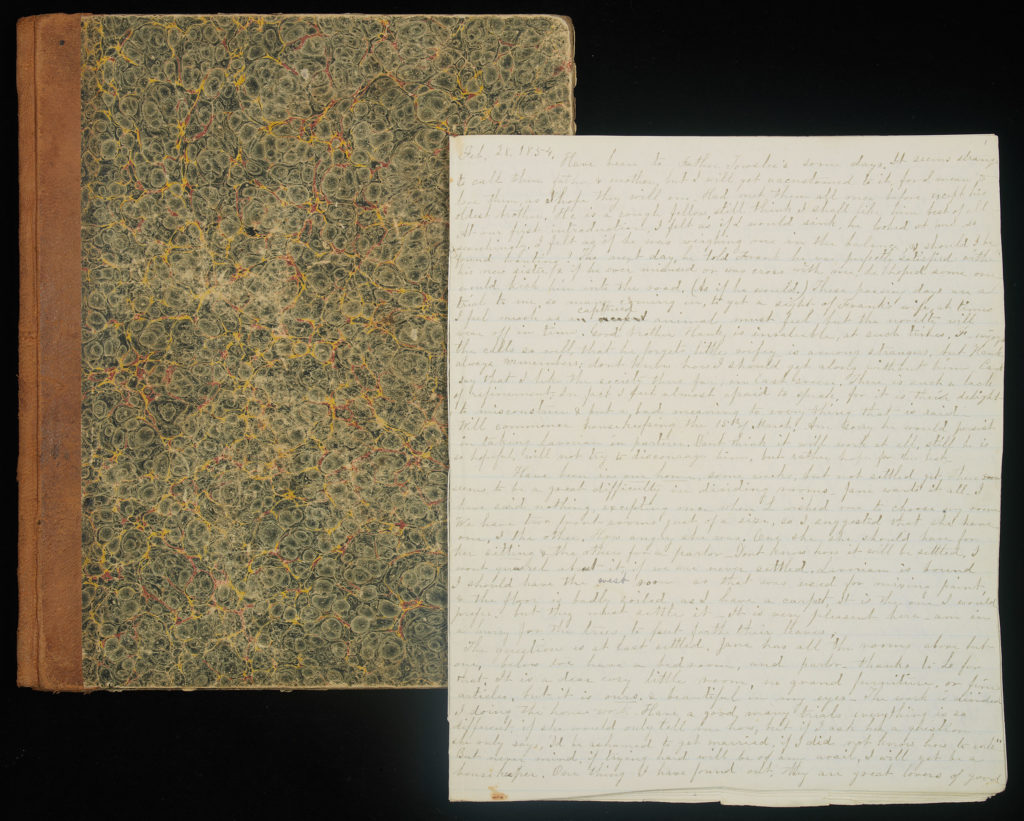 Feb. 28. 1854.
Have been to Father 's some days, It seems strange
to call them father & mother, but I will get accustomed to it, for I mean to
love them, as I hope they will me. Had met them all once before, except his
oldest brother, He is a rough fellow, still think I shall like him best of all
At our first introduction, I felt as if I would sink, he looked at me so
, I felt as if he was weighing me in the balance, & should I be
found wanting! The next day, he told Frank he was perfectly satisfied with
his new sister & if he ever misused or was cross with me, he hoped some one
would kick him into the road, (As if he would.) These passing days are a
trial to me, so many coming in, to get a sight of Frank's wife, at times
I feel much as captured criminal must feel, but the novelty will
wear off in time. Good Mother is invaluable, at such times. F.
the calls so well, that he forgets, little wifey is among strangers, but Hank
always remembers, dont know how I should get along without him. Cant
say that I like the society thus far, in Lackawaxen. There is such a lack
of refinement. In fact I feel almost afraid to speak, for it is their delight
to misconstrue & put a bad meaning to every thing that is said.
Will commence housekeeping the 15th of March. Am sorry he would persist
in taking as partner. Dont think it will work at all, still he is
so hopeful, will not try to discourage him, but rather hope for the best.
Have been in our home, some weeks, but not settled yet, there
seems to be a great difficulty in dividing rooms. Jane wants it all. I
have said nothing, excepting once when I wished me to choose my room
We have two front rooms just of a size, so I suggested that she have
one, I the other. How angry she was. One she, she should have for
her sitting & the other for a parlor. Dont know how it will be settled. I
wont quarrel about it, if we are never settled. is bound
I should have the west room as that was used for mixing paint,
& the floor is badly soiled, as I have a carpet, it is the one I would
prefer, but they must settle it. It is very pleasant here. am in
a hurry for the trees to put forth their leaves.
The question is at last settled. Jane has all the rooms above but
one, below we have a bedroom, and parlor. thanks to for
that. It is a dear cosy little room, no grand furniture, or fine
articles, but it is ours & beautiful in my eyes. The work is divided
I doing the house work. Have a good many trials, everything is so
different, if she would only tell me how, but if I ask her a question
she only says, "I'd be ashamed to get married, if I did not know how to work"
But never mind, if trying hard will be of any avail, I will yet be a
housekeeper. One thing I have found out. They are great lovers of good